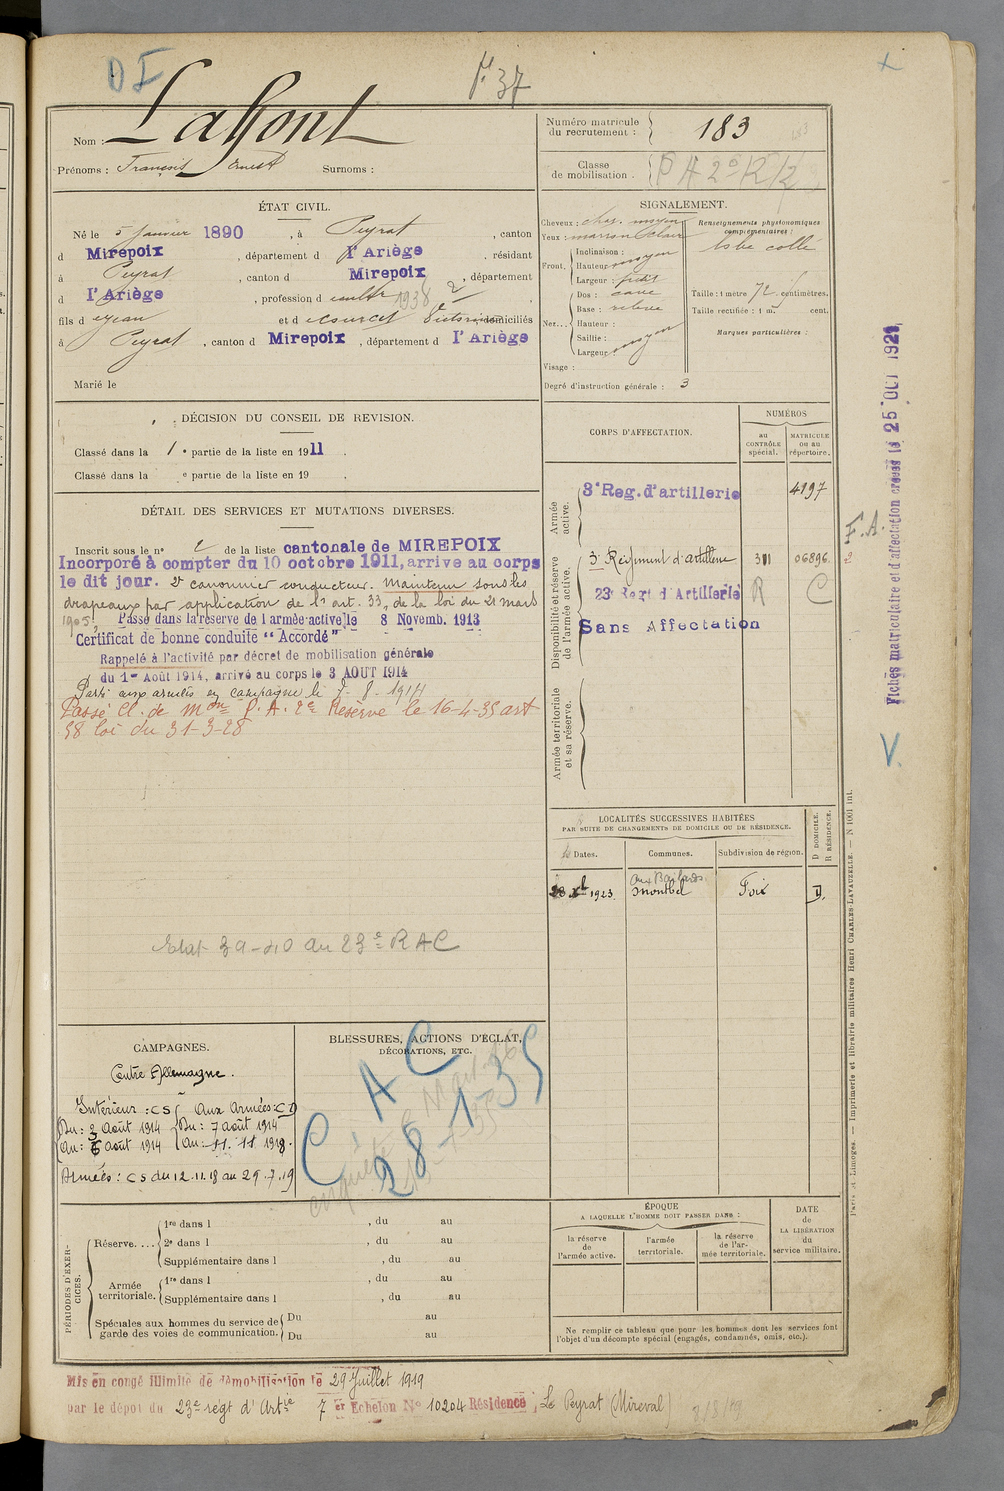 D I
Lafont
F° 37
Nom :
Prénoms : François Ernest Surnoms :
Numéro matricule
du recrutement : 183
Classe
de mobilisation . P A 2e R/2
ÉTAT CIVIL.
Né le 5 janvier 1890 , à Peyrat , canton
d Mirepoix , département d l'Ariège , résidant
à Peyrat , canton d Mirepoix , département
d l'Ariège , profession d cultr 1938
fils d et d domiciliés
à Peyrat , canton d Mirepoix , département d l'Ariège
Marié le
SIGNALEMENT.
Cheveux : chat. moyen
Yeux : marron clair
Front. Inclinaison :
Hauteur moyen
Largeur : petit
Nez... Dos : cave
Base : relevée
Hauteur :
Saillie :
Largeur moyen
Visage :
Renseignements physionomiques
complémentaires :
lobe collé
Taille : 1 metre 72 centimètres.
Taille rectifiée : 1 m. cent.
Marques particulières :
Degré d'instruction générale : 3
DÉCISION DU CONSEIL DE REVISION.
Classé dans la 1 e partie de la liste en 1911 .
Classé dans la e partie de la liste en 19 .
DÉTAIL DES SERVICES ET MUTATIONS DIVERSES.
Inscrit sous le n° de la liste cantonale de MIREPOIX
Incorporé à compter du 10 octobre 1911, arrive au corps
le dit jour. 2e canonnier conducteur. Maintenu sous les
drapeaux par application de l'art. 33, de la loi du 21 mars
1905. Passé dans la réserve de l'armée active le 8 Novemb. 1913
Certificat de bonne conduite "Accordé"
Rappelé à l'activité par décret de mobilisation générale
du 1er Août 1914, arrivé au corps le 3 AOUT 1914
Parti aux armées en campagne le 7-8-1914
Passé Cl. de Mon P. A. 2e Réserve le 16-4-35 art
58 loi du 31-3-28
Etat 39-40 au 23e R A C
CORPS D'AFFECTATION.
NUMÉROS
au
CONTRÔLE
spécial.
MATRICULE
ou au
répertoire.
Armée
active.
3e Reg. d'artillerie 4197
Disponibilité et réserve
de l'armée active.
3e Régiment d'artillerie 06896
23e Regt d'Artillerie R C
Sans Affectation
Armée territoriale
et sa réserve.
F.A.
2
Fiches matriculaire et d'affectation créées le 25 OCT 1921
V.
LOCALITÉS SUCCESSIVES HABITÉES
PAR SUITE DE CHANGEMENTS DE DOMICILE OU DE RÉSIDENCE.
D DOMICILE.
R RÉSIDENCE.
Dates. Communes. Subdivision de région.
1923 Montbel Foix D.
Paris et Limoges. — Imprimerie et librairie militaires Henri CHARLES-LAVAUZELLE. — N 1001 int.
CAMPAGNES.
Contre Allemagne.
Intérieur : CS Aux Armées : CD
Du : 3 Août 1914 Du : 7 août 1914
Au : 6 Août 1914 Au 11. 11 1918.
Armées : CS du 12.11.18 au 29.7.19
BLESSURES, ACTIONS D'ÉCLAT,
DÉCORATIONS, ETC.
C A C
28-1-35
PÉRIODES D'EXERCICES.
Réserve.... 1re dans l , du au
2e dans l , du au
Supplémentaire dans l , du au
Armée
territoriale. 1re dans l , du au
Supplémentaire dans l , du au
Spéciales aux hommes du service de
garde des voies de communication. Du au
Du au
ÉPOQUE
A LAQUELLE L'HOMME DOIT PASSER DANS :
la réserve
de
l'armée active.
l'armée
territoriale.
la réserve
de l'ar-
mée territoriale.
DATE
de
LA LIBÉRATION
du
service militaire.
Ne remplir ce tableau que pour les hommes dont les services font
l'objet d'un décompte spécial (engagés, condamnés, omis, etc.).
Mis en congé illimité de démobilisation le 29 Juillet 1919
par le dépôt du 23e regt d'Artie 7 er Echelon N° 10204 Résidence ; Le Peyrat (Mireval)